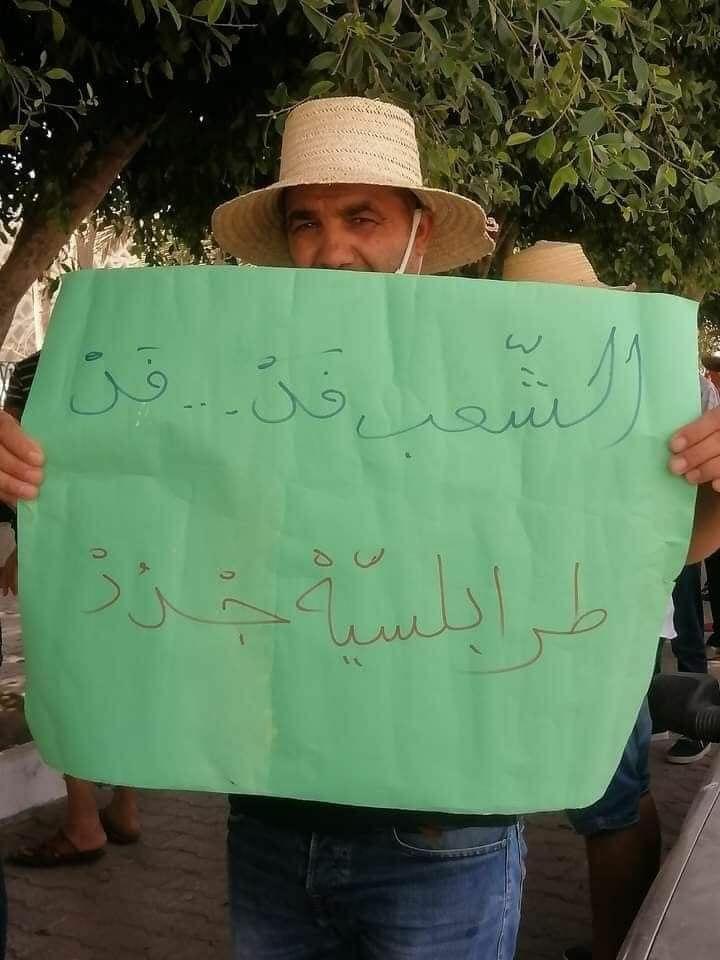 الشّعب فَدْ... فَدْ
طرابلسيّةْ جْدُدْ